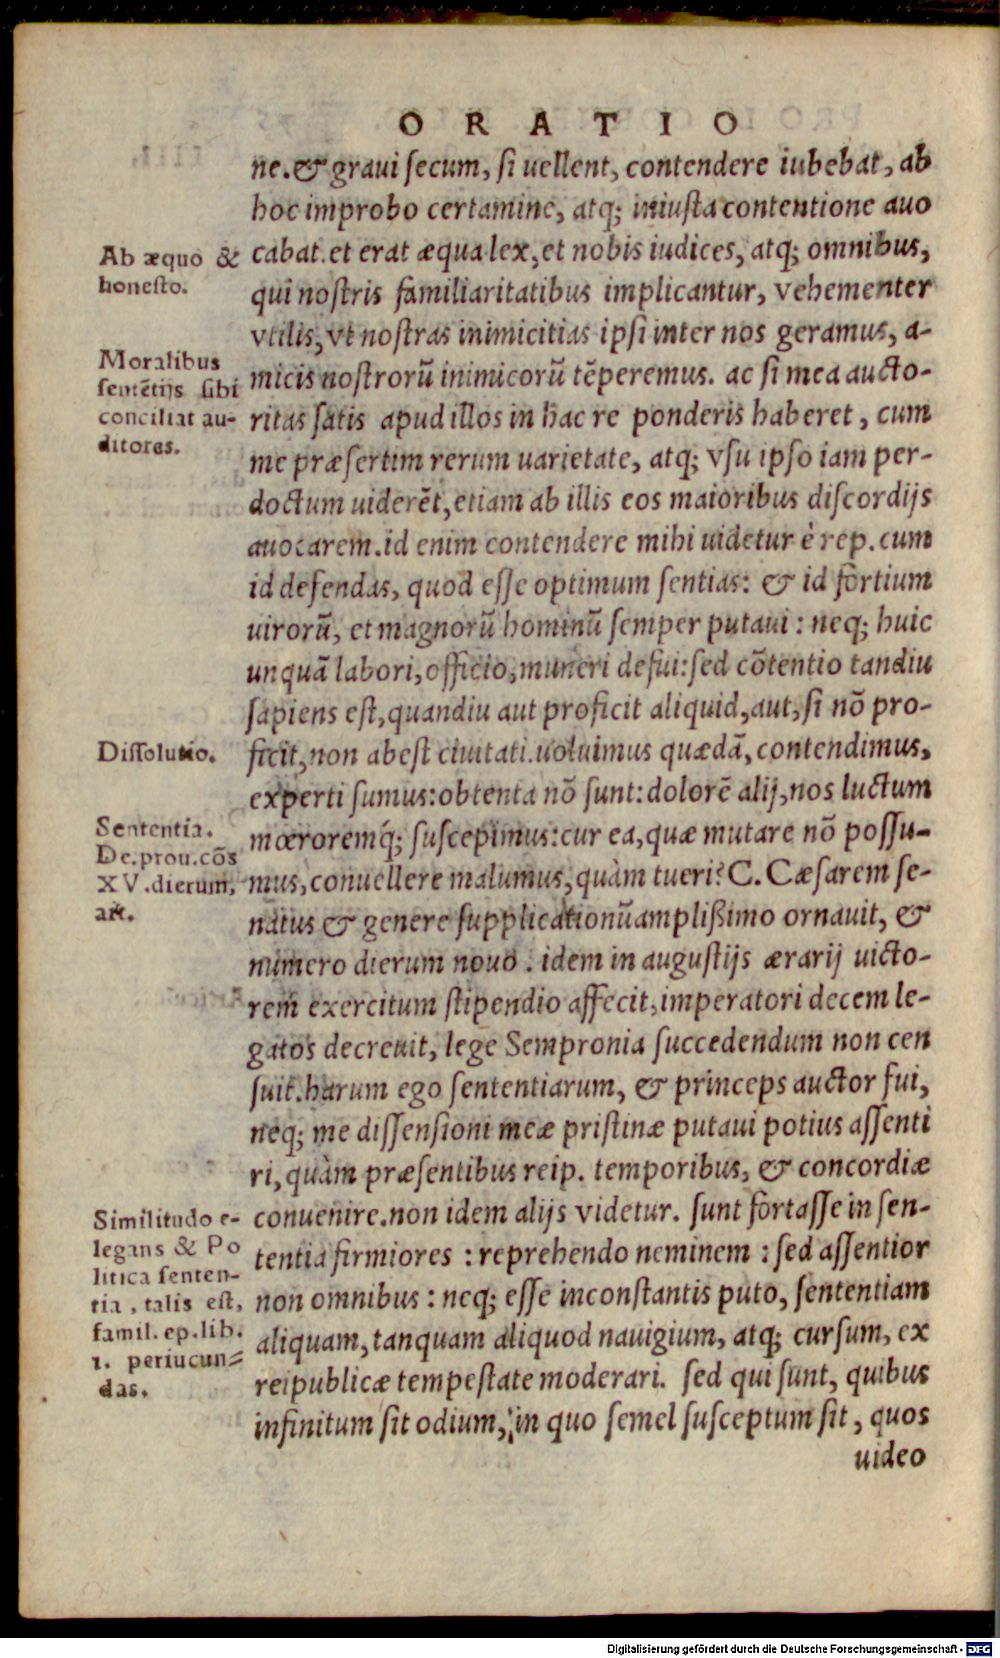 ORATIO
ne. & graui secum, si uellent, contendere iubebat, ab
hoc improbo certamine, atq; iniusta contentione auo
cabat. et erat æqua lex, et nobis iudices, atq; omnibus,
qui nostris familiaritatibus implicantur, vehementer
vtilis, vt nostras inimicitias ipsi inter nos geramus, a-
micis nostrorũ inimicorũ tẽperemus. ac si mea aucto-
ritas satis apud illos in hac re ponderis haberet, cum
me præsertim rerum uarietate, atq; vsu ipso iam per-
doctum uiderẽt, etiam ab illis eos maioribus discordijs
auocarem. id enim contendere mihi uidetur è rep. cum
id defendas, quod esse optimum sentias: & id fortium
uirorũ, et magnorũ hominũ semper putaui: neq; huic
unquã labori, officio, muneri defui: sed cõtentio tandiu
sapiens est, quandiu aut proficit aliquid, aut, si nõ pro-
ficit, non abest ciuitati. uoluimus quædã, contendimus,
experti sumus: obtenta nõ sunt: dolorẽ alij, nos luctum
mœroremq́; suscepimus: cur ea, quæ mutare nõ possu-
mus, conuellere malumus, quàm tueri? C. Cæsarem se-
natus & genere supplicationũ amplißimo ornauit, &
numero dierum nouo. idem in augustijs ærarij uicto-
rem exercitum stipendio affecit, imperatori decem le-
gatos decreuit, lege Sempronia succedendum non cen
suit. harum ego sententiarum, & princeps auctor fui,
neq; me dissensioni meæ pristinæ putaui potius assenti
ri, quàm præsentibus reip. temporibus, & concordiæ
conuenire. non idem alijs videtur. sunt fortasse in sen-
tentia firmiores: reprehendo neminem: sed assentior
non omnibus: neq; esse inconstantis puto, sententiam
aliquam, tanquam aliquod nauigium, atq; cursum, ex
reipublicæ tempestate moderari. sed qui sunt, quibus
infinitum sit odium, in quo semel susceptum sit, quos
uideo
Ab æquo &
honesto.
Moralibus
sentẽtijs sibi
conciliat au-
ditores.
Dissolutio.
Sententia.
De.prou.cõs
XV.dierum,
art.
Similitudo e-
legans & Po
litica senten-
tia, talis est,
famil. ep. lib.
1. periucun-
das.
Digitalisierung gefördert durch die Deutsche Forschungsgemeinschaft - DFG